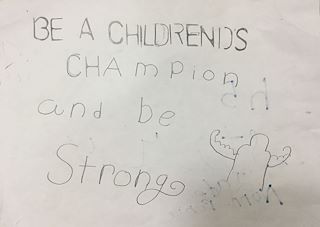 BE A CHILDRENDS
CHAmpion
and be
Strong